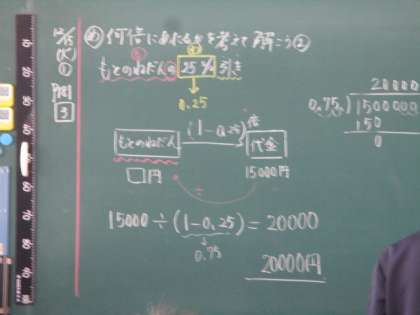 12/15
(火)
①
P101
3
め 何倍にあたるかを考えて解こう②
もとのねだんの 25% 引き
0.25
もとのねだん
(1-0.25)倍
代金
□円
15000円
15000÷(1-0.25)=20000
0.75
20000円
20000
0.75)1500000
150
0